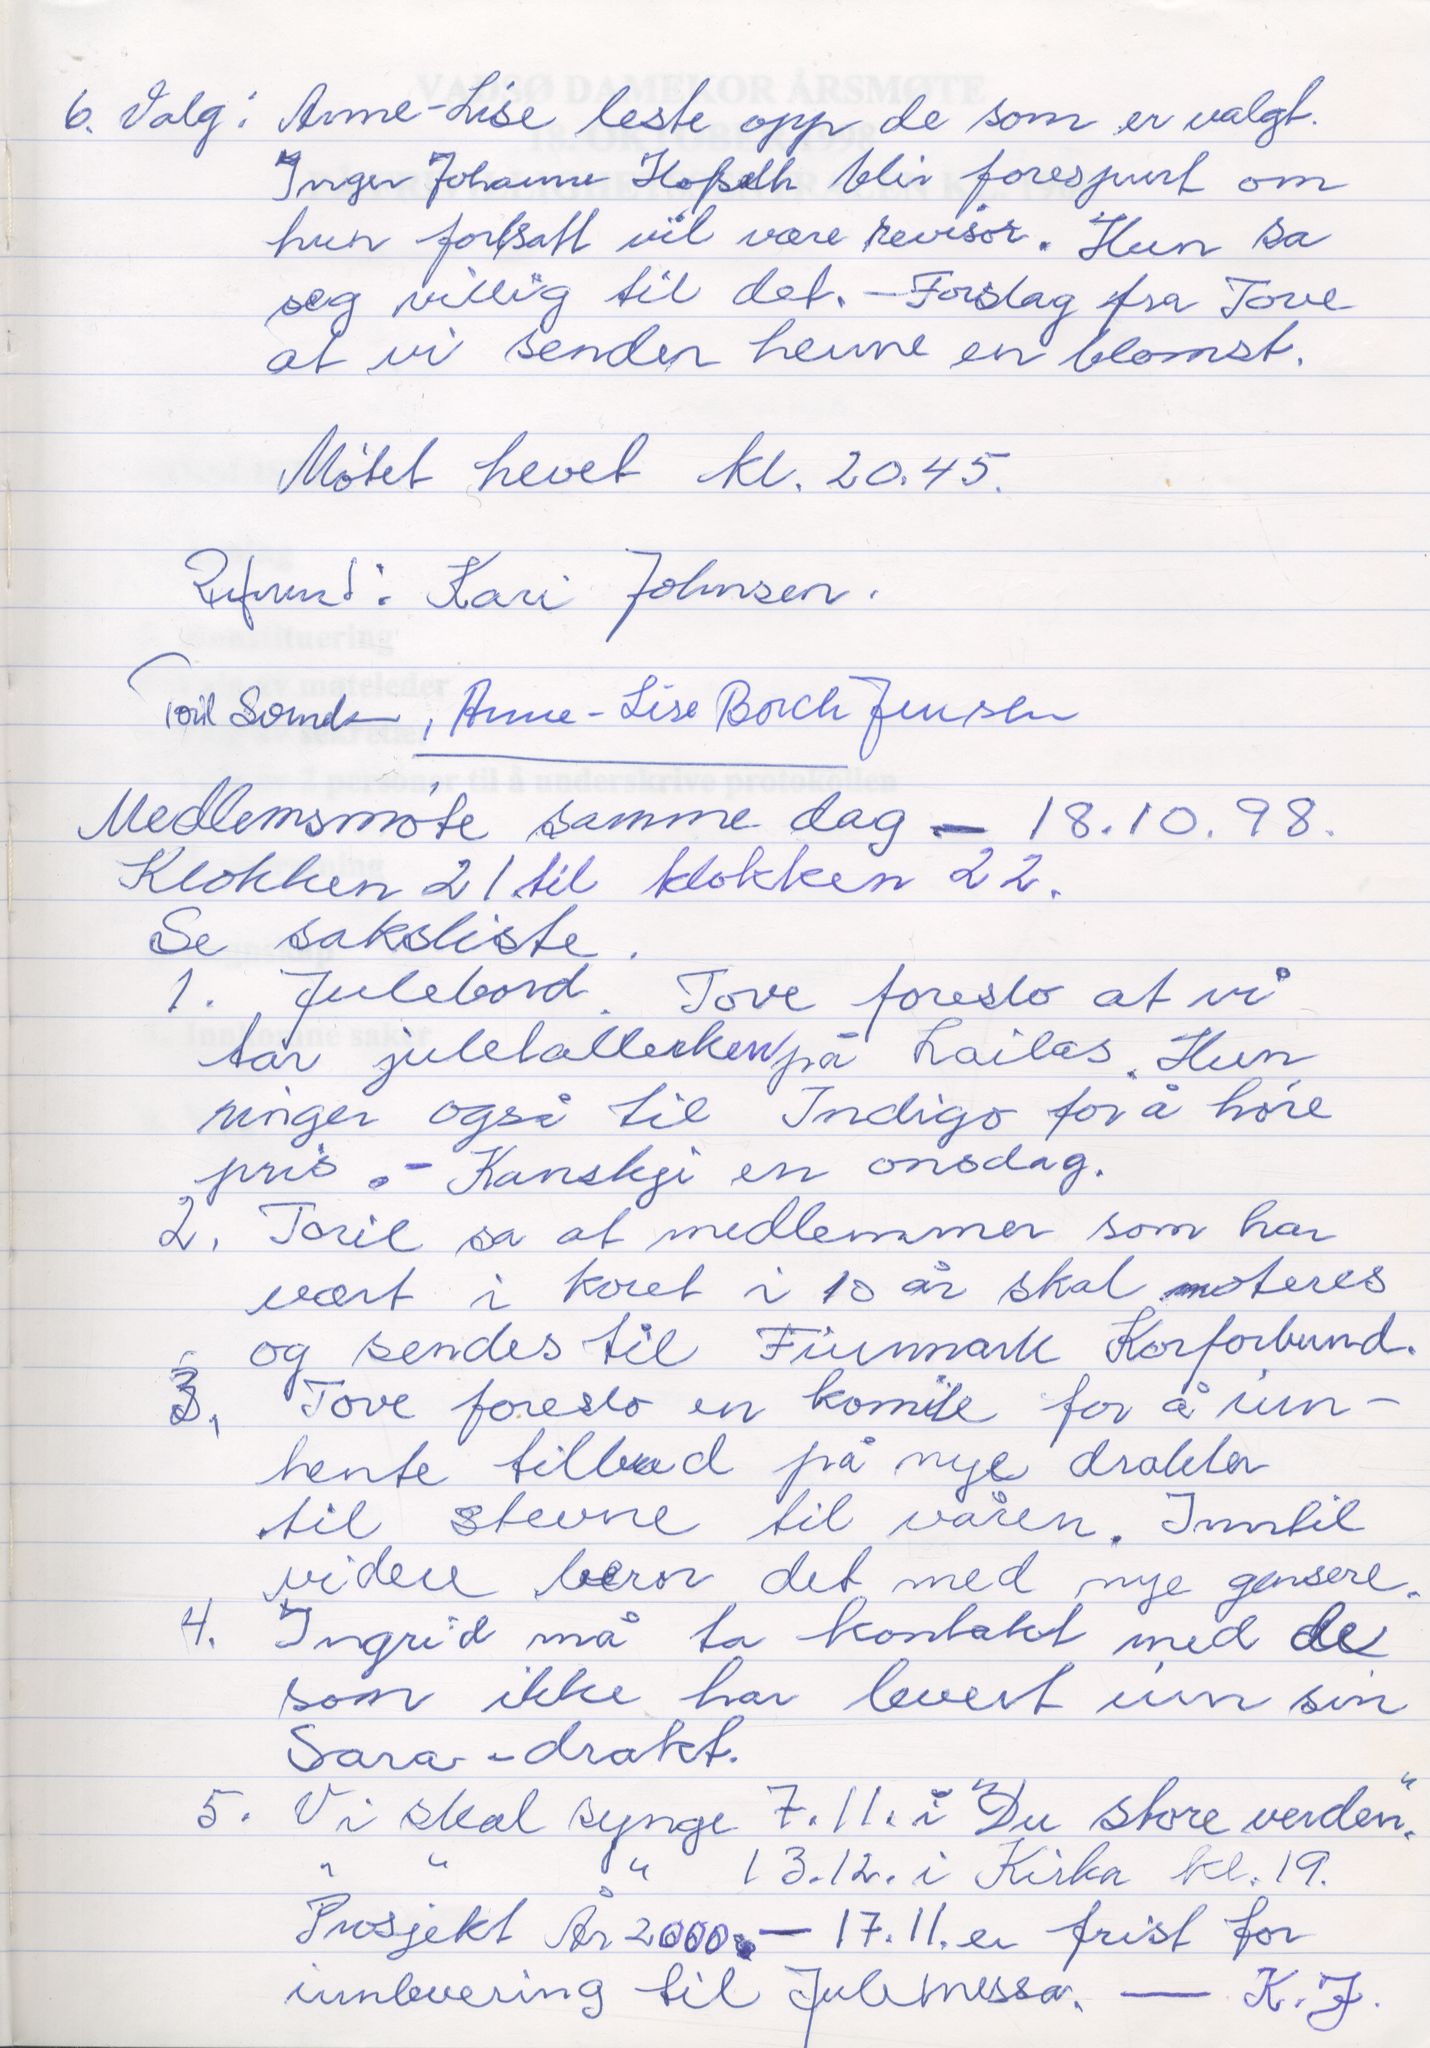 6. Valg: Anne-Lise leste opp de som er valgt.
Inger Johanne Hopseth blir forespurt om
hun fortsatt vil være revisor. Hun sa
seg villig til det. - Forslag fra Tove
at vi sender henne en blomst.
Møtet hevet kl. 20.45.
Referent: Kari Johnsen.
Toril , Anne-Lise Borch Jensen
Medlemsmøte samme dag - 18.10.98.
Klokken 21 til klokken 22.
Se saksliste.
1. Julebord. Tove foreslo at vi
tar juletallerken på Lailas. Hun
ringer også til Indigo for å høre
pris. - Kanskje en onsdag.
2. Toril sa at medlemmer som har
vært i koret i 10 år skal noteres
og sendes til Finnmark Korforbund.
3. Tove foreslo en komite for å inn-
hente tilbud på nye drakter
til stevne til våren. Inntil
videre beror det med nye gensere.
4. Ingrid må ta kontakt med de
som ikke har levert inn sin
Sara-drakt.
5. Vi skal synge 7.11. i "Du store verden".
" " " 13.12. i Kirka kl. 19.
Prosjekt År 2000. - 17.11. er frist for
innlevering til Julemessa. — K.J.